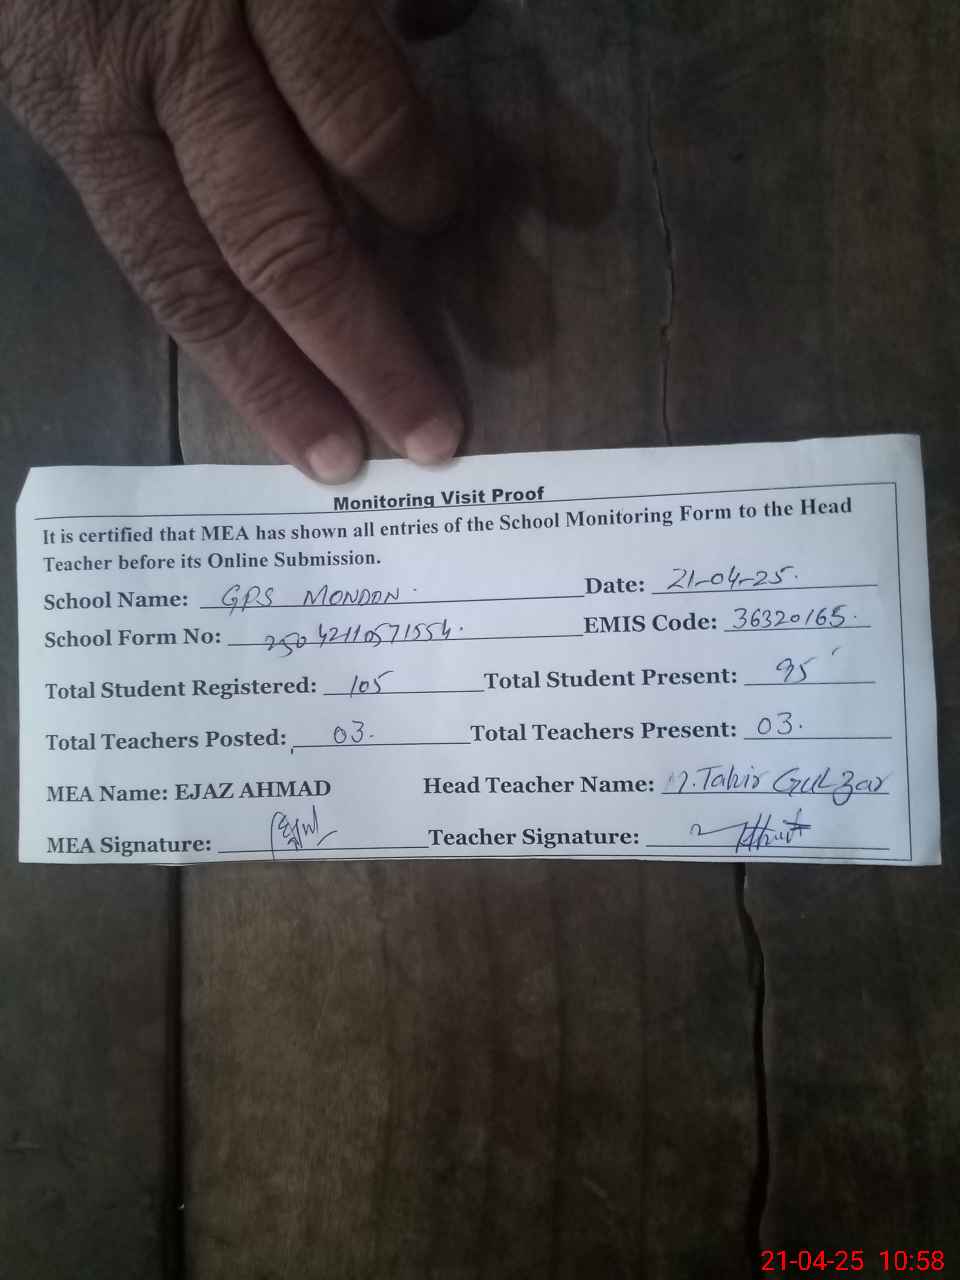 Monitoring Visit Proof
It is certified that MEA has shown all entries of the School Monitoring Form to the Head
Teacher before its Online Submission.
School Name: GPS MONDAN. Date: 21-04-25.
School Form No: 25042110571554. EMIS Code: 36320165.
Total Student Registered: 105 Total Student Present: 95
Total Teachers Posted: 03. Total Teachers Present: 03.
MEA Name: EJAZ AHMAD Head Teacher Name: M. Tahir Gulzar
MEA Signature: Teacher Signature:
21-04-25 10:58